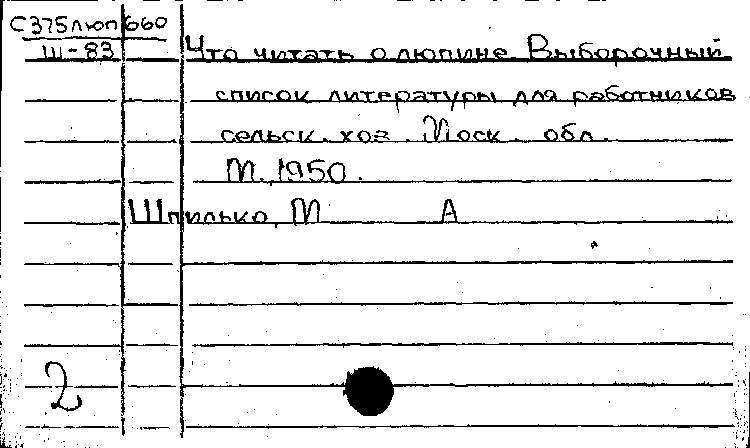 С375люп 660
Ш-83 Что читать о люпине Выборочный
список литературы для работников
сельск. хоз. Моск. обл.
М., 1950.
Шпилько, М А
2